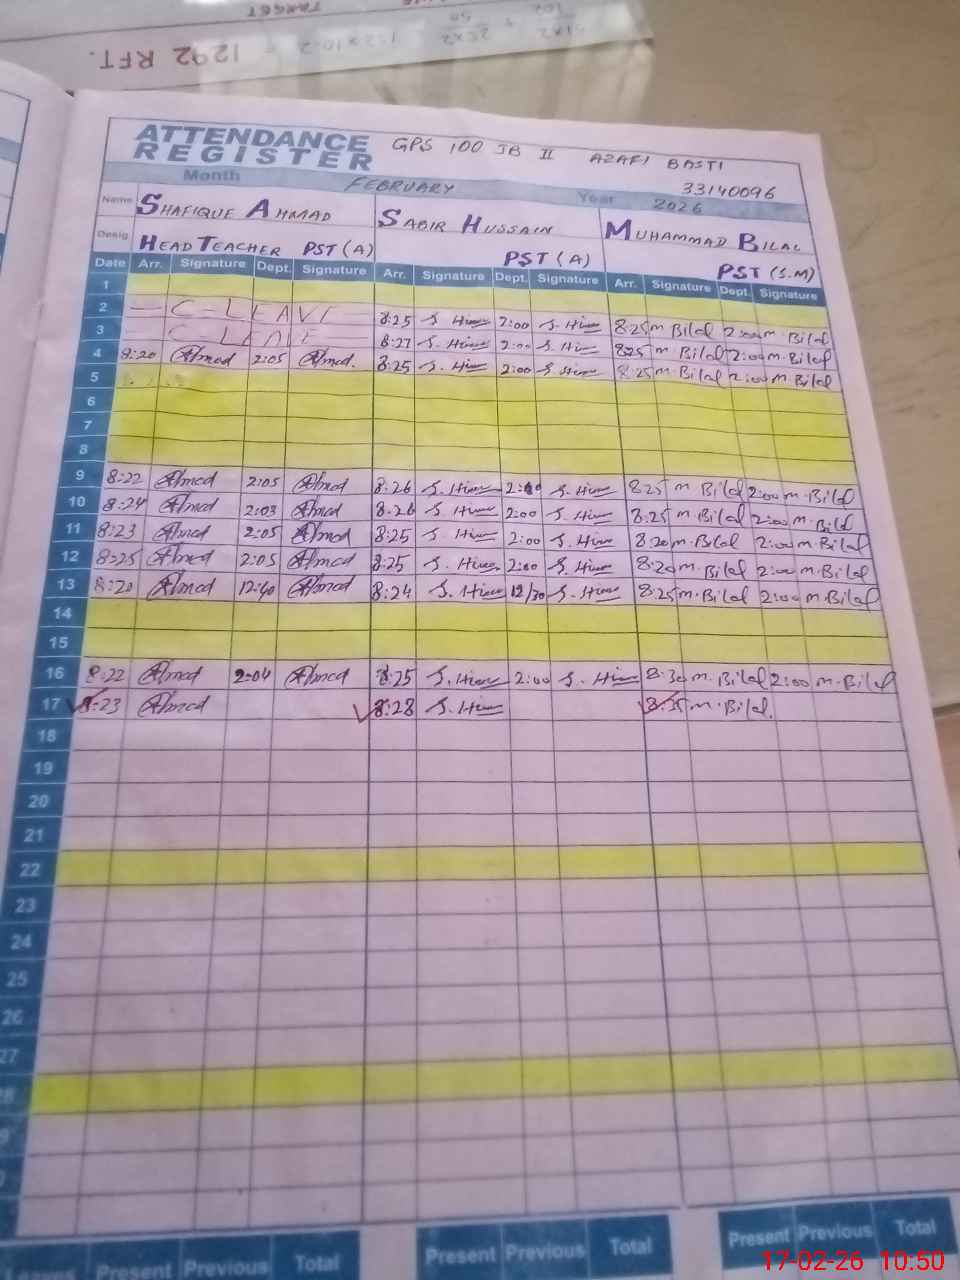 1292 RFT.
TARGET
ATTENDANCE REGISTER GPS 100 JB II AZAFI BASTI
33140096
Month FEBRUARY Year 2026
Name SHAFIQUE AHMAD SABIR HUSSAIN MUHAMMAD BILAL
Desig. HEAD TEACHER PST (A) PST (A) PST (S.M)
Date Arr. Signature Dept. Signature Arr. Signature Dept. Signature Arr. Signature Dept. Signature
1
2 — C-LEAVE 8:25 2:00 8:25 m Bilal 2:00 m. Bilal
3 — C-LEAVE 8:27 2:00 8:25 m Bilal 2:00 m. Bilal
4 8:20 Ahmed 2:05 Ahmed. 8:25 2:00 8:25 m. Bilal 2:00 m. Bilal
5
6
7
8
9 8:22 Ahmed 2:05 Ahmed 8:26 2:00 8:25 m. Bilal 2:00 m. Bilal
10 8:24 Ahmed 2:03 Ahmed 8:26 2:00 8:25 m. Bilal 2:00 m. Bilal
11 8:23 Ahmed 2:05 Ahmed 8:25 2:00 8:20 m. Bilal 2:00 m. Bilal
12 8:25 Ahmed 2:05 Ahmed 8:25 2:00 8:20 m. Bilal 2:00 m. Bilal
13 8:20 Ahmed 12:40 Ahmed 8:24 12/30 8:25 m. Bilal 2:00 m. Bilal
14
15
16 8:22 Ahmed 2:04 Ahmed 8:25 2:00 8:30 m. Bilal 2:00 m. Bilal
17 8:23 Ahmed 8:28 m. Bilal.
18
19
20
21
22
23
24
25
26
27
Present Previous Total Present Previous Total Present Previous Total
17-02-26 10:50